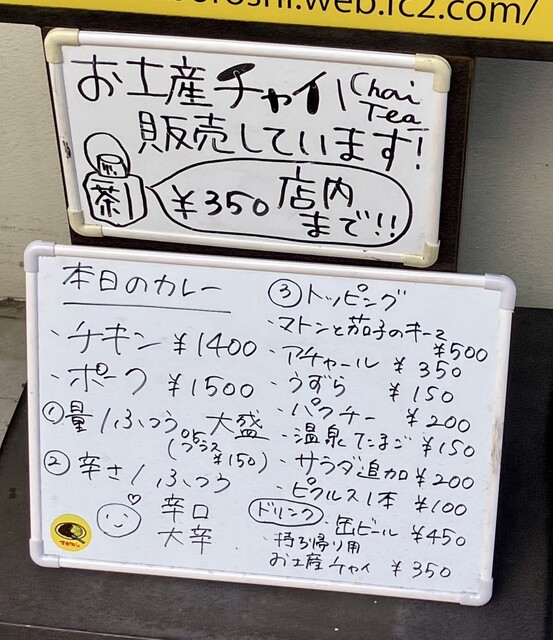 oroshi.web.fc2.com/
お土産チャイ Chai Tea
販売しています!
茶
¥350 店内まで!!
本日のカレー
・チキン ¥1400
・ポーク ¥1500
①量/ふつう 大盛
(プラス ¥150)
②辛さ/ふつう
辛口
大辛
③トッピング
・マトンと茄子のキーマ ¥500
・アチャール ¥350
・うずら ¥150
・パクチー ¥200
・温泉たまご ¥150
・サラダ追加 ¥200
・ピクルス1本 ¥100
ドリンク ・缶ビール ¥450
・持ち帰り用
お土産チャイ ¥350